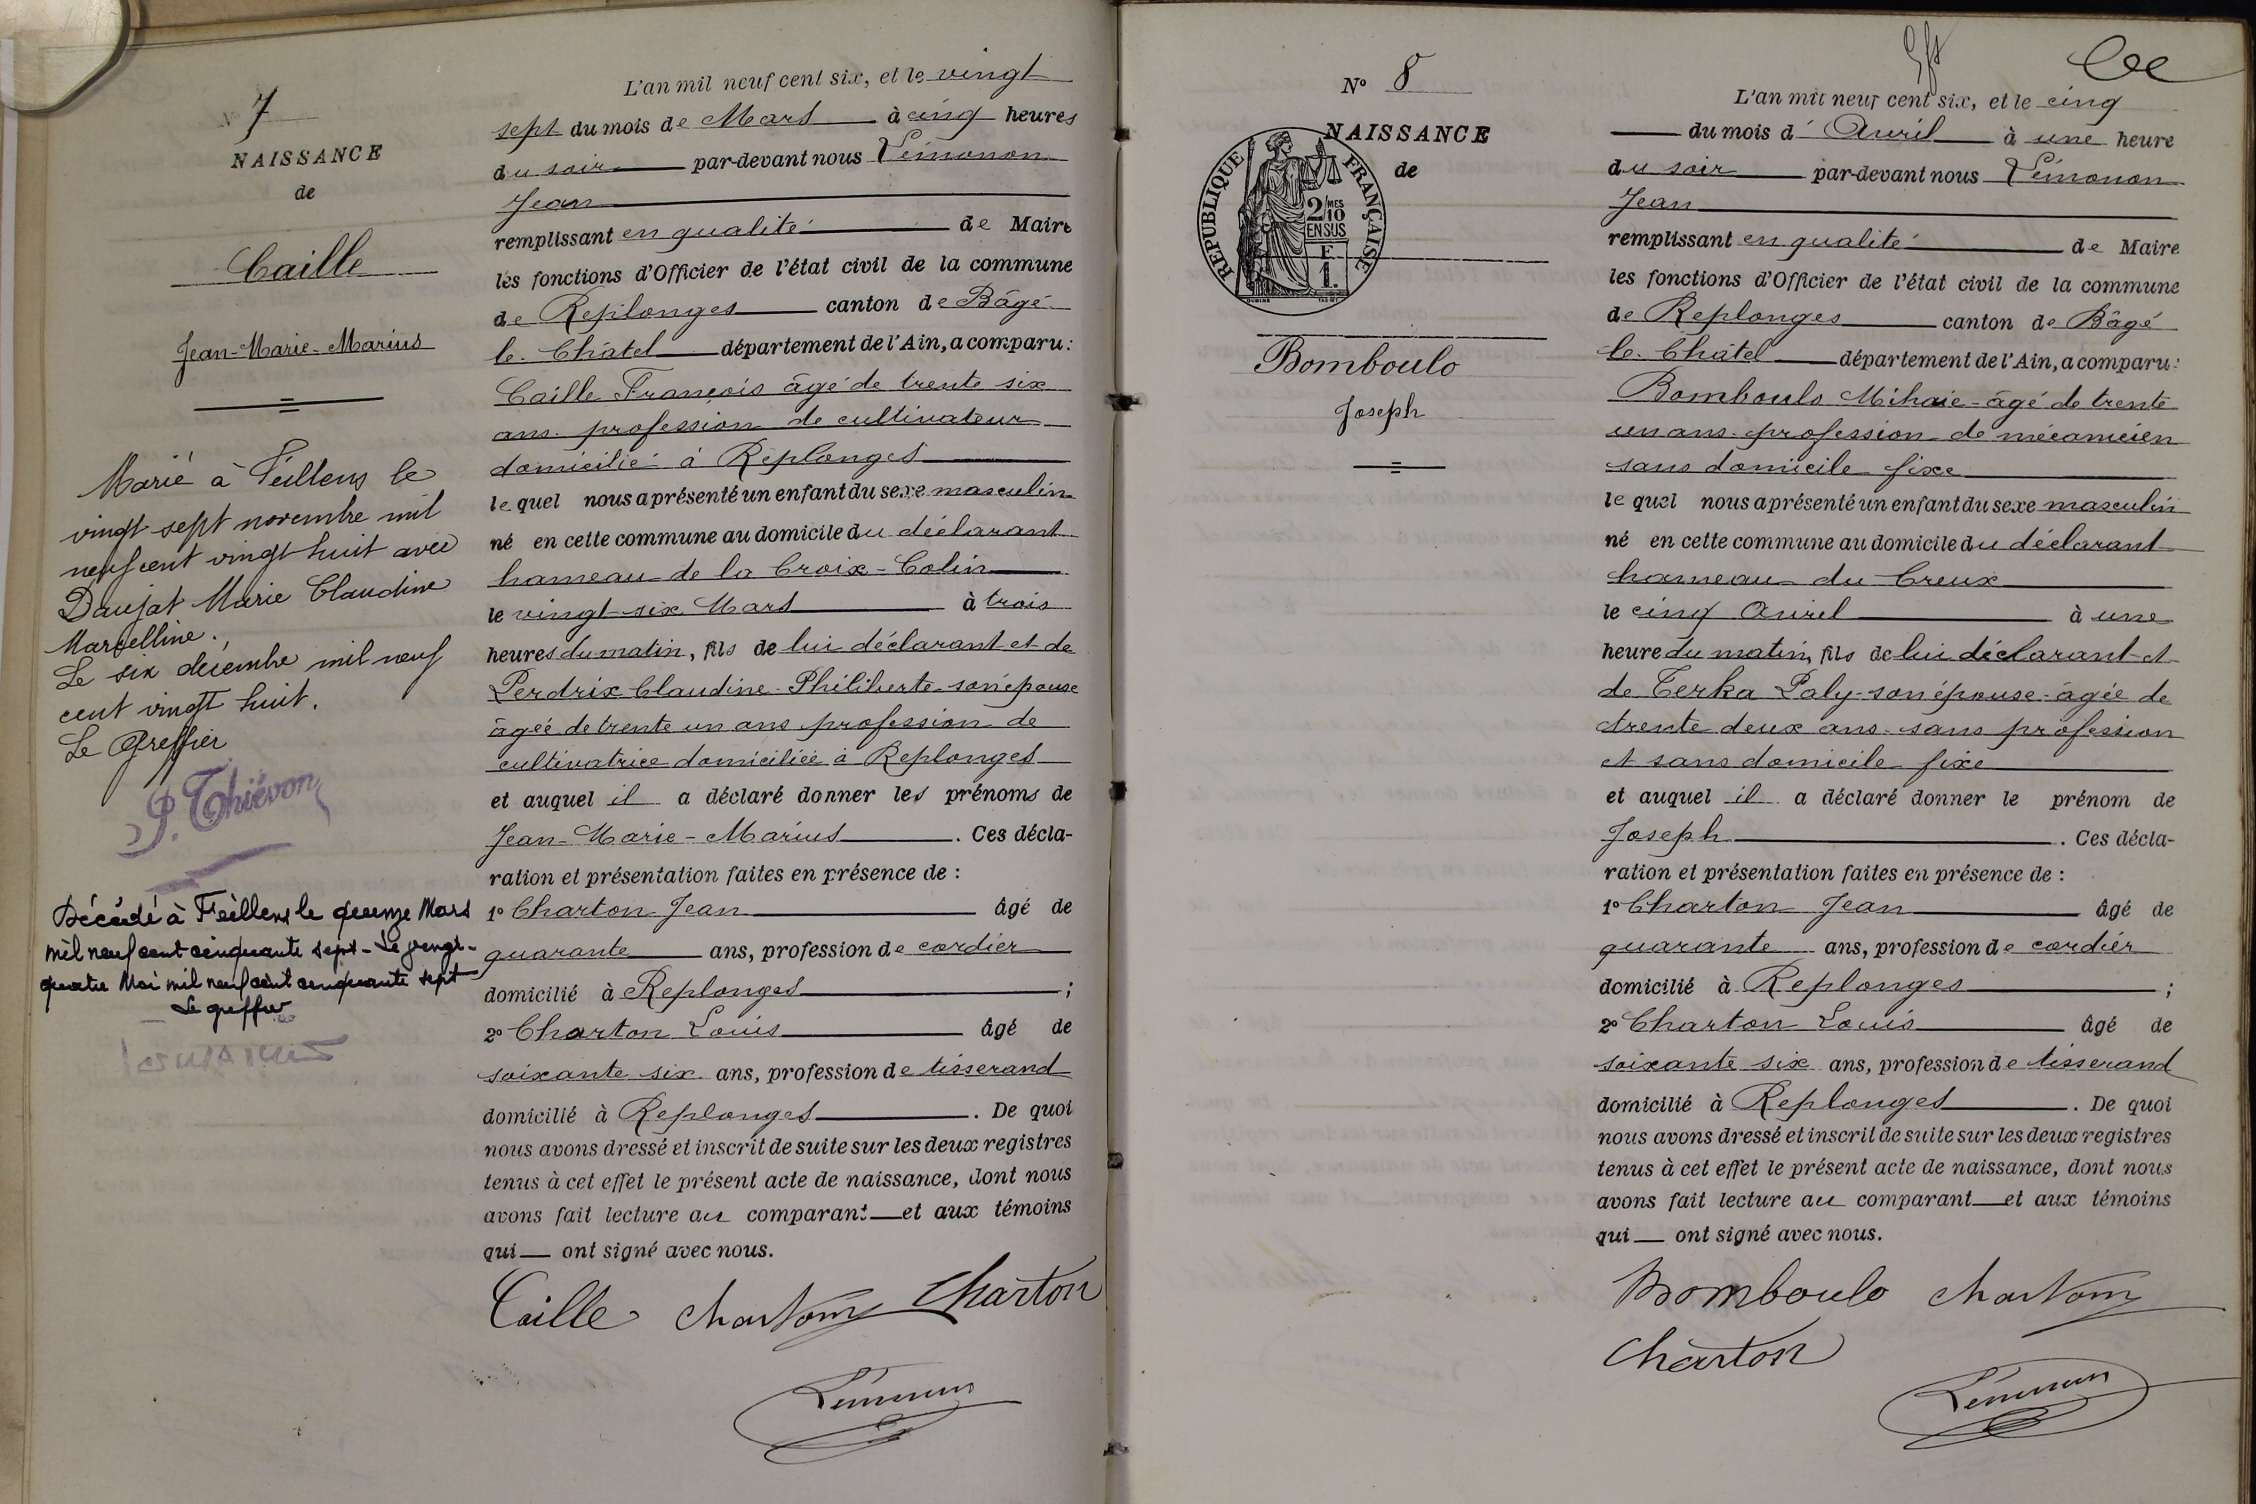 N° 7
NAISSANCE
de
Caille
Jean-Marie-Marius
Marié à Feillens le
vingt sept novembre mil
neuf cent vingt huit avec
Daujat Marie Claudine
Marcelline.
Le six décembre mil neuf
cent vingt huit.
Le Greffier
P. Thiévon
Décédé à Feillens le quinze Mars
mil neuf cent cinquante sept - Le vingt-
quatre Mai mil neuf cent cinquante sept
Le greffier
L'an mil neuf cent six, et le vingt
sept du mois de Mars à cinq heures
du soir par-devant nous Lémonon
Jean
remplissant en qualité de Maire
les fonctions d'Officier de l'état civil de la commune
de Replonges canton de Bâgé
le Châtel département de l'Ain, a comparu :
Caille François âgé de trente six
ans profession de cultivateur
domicilié à Replonges
le quel nous a présenté un enfant du sexe masculin
né en cette commune au domicile du déclarant
hameau de la Croix-Colin
le vingt-six Mars à trois
heures du matin, fils de lui déclarant et de
Perdrix Claudine Philiberte son épouse
âgée de trente un ans profession de
cultivatrice domiciliée à Replonges
et auquel il a déclaré donner les prénoms de
Jean-Marie-Marius. Ces décla-
ration et présentation faites en présence de :
1° Charton Jean âgé de
quarante ans, profession de cordier
domicilié à Replonges ;
2° Charton Louis âgé de
soixante six ans, profession de tisserand
domicilié à Replonges. De quoi
nous avons dressé et inscrit de suite sur les deux registres
tenus à cet effet le présent acte de naissance, dont nous
avons fait lecture au comparant et aux témoins
qui ont signé avec nous.
Caille Charton Charton
Lémonon
N° 8
NAISSANCE
de
REPUBLIQUE FRANÇAISE
2/MES
10
EN SUS
F
1.
Bomboulo
Joseph
L'an mil neuf cent six, et le cinq
du mois d' Avril à une heure
du soir par-devant nous Lémonon
Jean
remplissant en qualité de Maire
les fonctions d'Officier de l'état civil de la commune
de Replonges canton de Bâgé
le Châtel département de l'Ain, a comparu :
Bomboulo Mihaie âgé de trente
un ans profession de mécanicien
sans domicile fixe
le quel nous a présenté un enfant du sexe masculin
né en cette commune au domicile du déclarant
hameau du Creux
le cinq Avril à une
heure du matin, fils de lui déclarant et
de Terka Paly son épouse âgée de
trente deux ans sans profession
et sans domicile fixe
et auquel il a déclaré donner le prénom de
Joseph. Ces décla-
ration et présentation faites en présence de :
1° Charton Jean âgé de
quarante ans, profession de cordier
domicilié à Replonges ;
2° Charton Louis âgé de
soixante six ans, profession de tisserand
domicilié à Replonges. De quoi
nous avons dressé et inscrit de suite sur les deux registres
tenus à cet effet le présent acte de naissance, dont nous
avons fait lecture au comparant et aux témoins
qui ont signé avec nous.
Bomboulo Charton
Charton
Lémonon